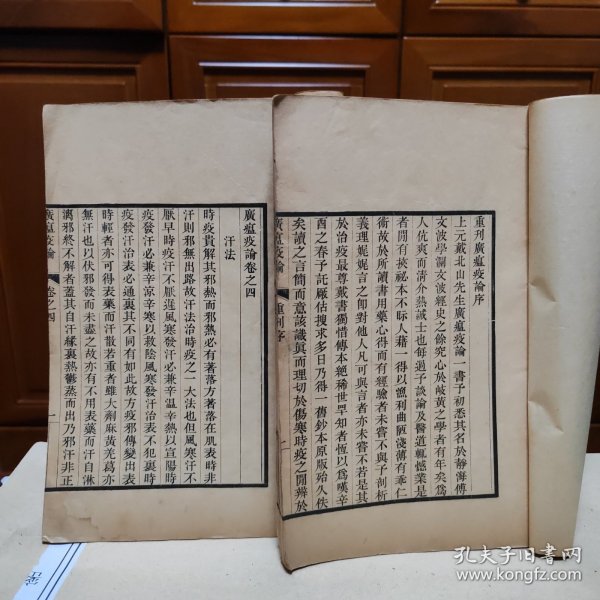 重刊廣瘟疫論序
上元戴北山先生廣瘟疫論一書予初悉其名於靜海傅
文波學淵文波經史之餘究心於岐黃之學者有年矣爲
人伉爽而清介熱誠士也每過予談論及醫道輒憾業是
者閒有挾祕本不眎人藉一得以漁利曲陋淺薄有乖仁
術故於所讀書用藥心得而有經驗者未嘗不與予剖析
義理娓娓言之卽對他人凡可與言者亦未嘗不若是其
於治疫最尊戴書獨惜傳本絕稀世罕知者恆以爲嘆辛
酉之春予託厰估搜求多日乃得一舊鈔本原版殆久佚
矣讀之言簡而意該識眞而理切於傷寒時疫之閒辨於
廣瘟疫論
重刊序
一
廣瘟疫論卷之四
汗法
時疫貴解其邪熱而邪熱必有著落方著落在肌表時非
汗則邪無出路故汗法治時疫之一大法也但風寒汗不
厭早時疫汗不厭遲風寒發汗必兼辛溫辛熱以宣陽時
疫發汗必兼辛涼辛寒以救陰風寒發汗治表不犯裏時
疫發汗治表必通裏其不同有如此故方疫邪傳變出表
時輕者亦可得表藥而汗散若重者雖大劑麻黃羌葛亦
無汗也以伏邪發而未盡之故亦有不用表藥而汗自淋
漓邪終不解者蓋其自汗緣裏熱鬱蒸而出乃邪汗非正
廣瘟疫論
卷之四
一
孔夫子旧书网
www.kongfz.com